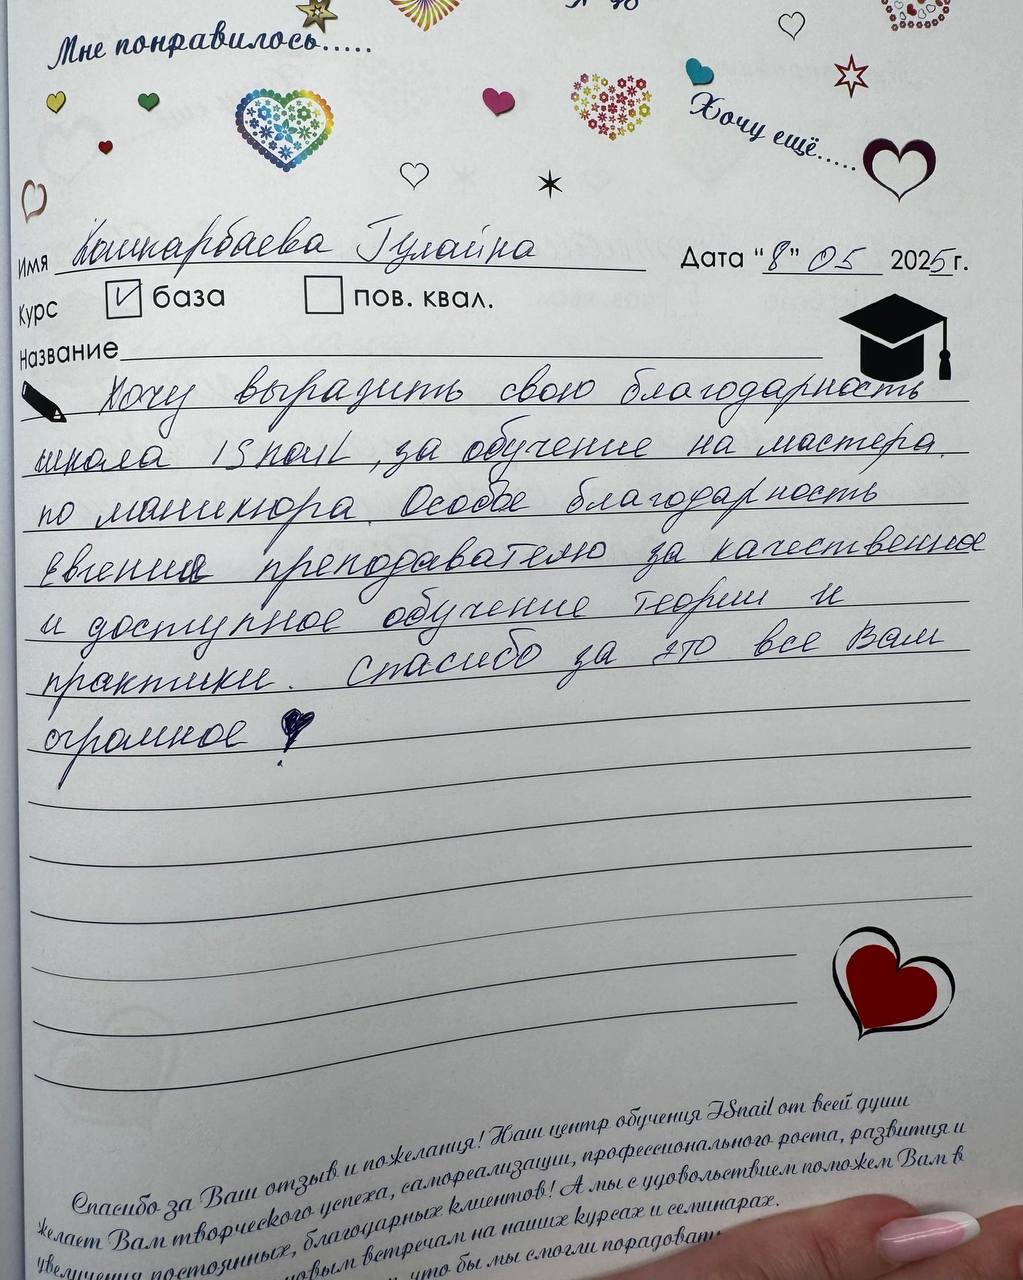 Мне понравилось.....
Хочу ещё.....
Имя Кошкарбаева Гулайна Дата "8" 05 2025 г.
Курс база пов. квал.
Название
Хочу выразить свою благодарность
школа ISnail, за обучение на мастера
по маникюра. Особое благодарность
Евгения преподавателю за качественное
и доступное обучение теории и
практики. Спасибо за это все Вам
огромное
Спасибо за Ваш отзыв и пожелания! Наш центр обучения ISnail от всей души
желает Вам творческого успеха, самореализации, профессионального роста, развития и
увеличения постоянных, благодарных клиентов! А мы с удовольствием поможем Вам в
новым встречам на наших курсах и семинарах.
что бы мы смогли порадовать